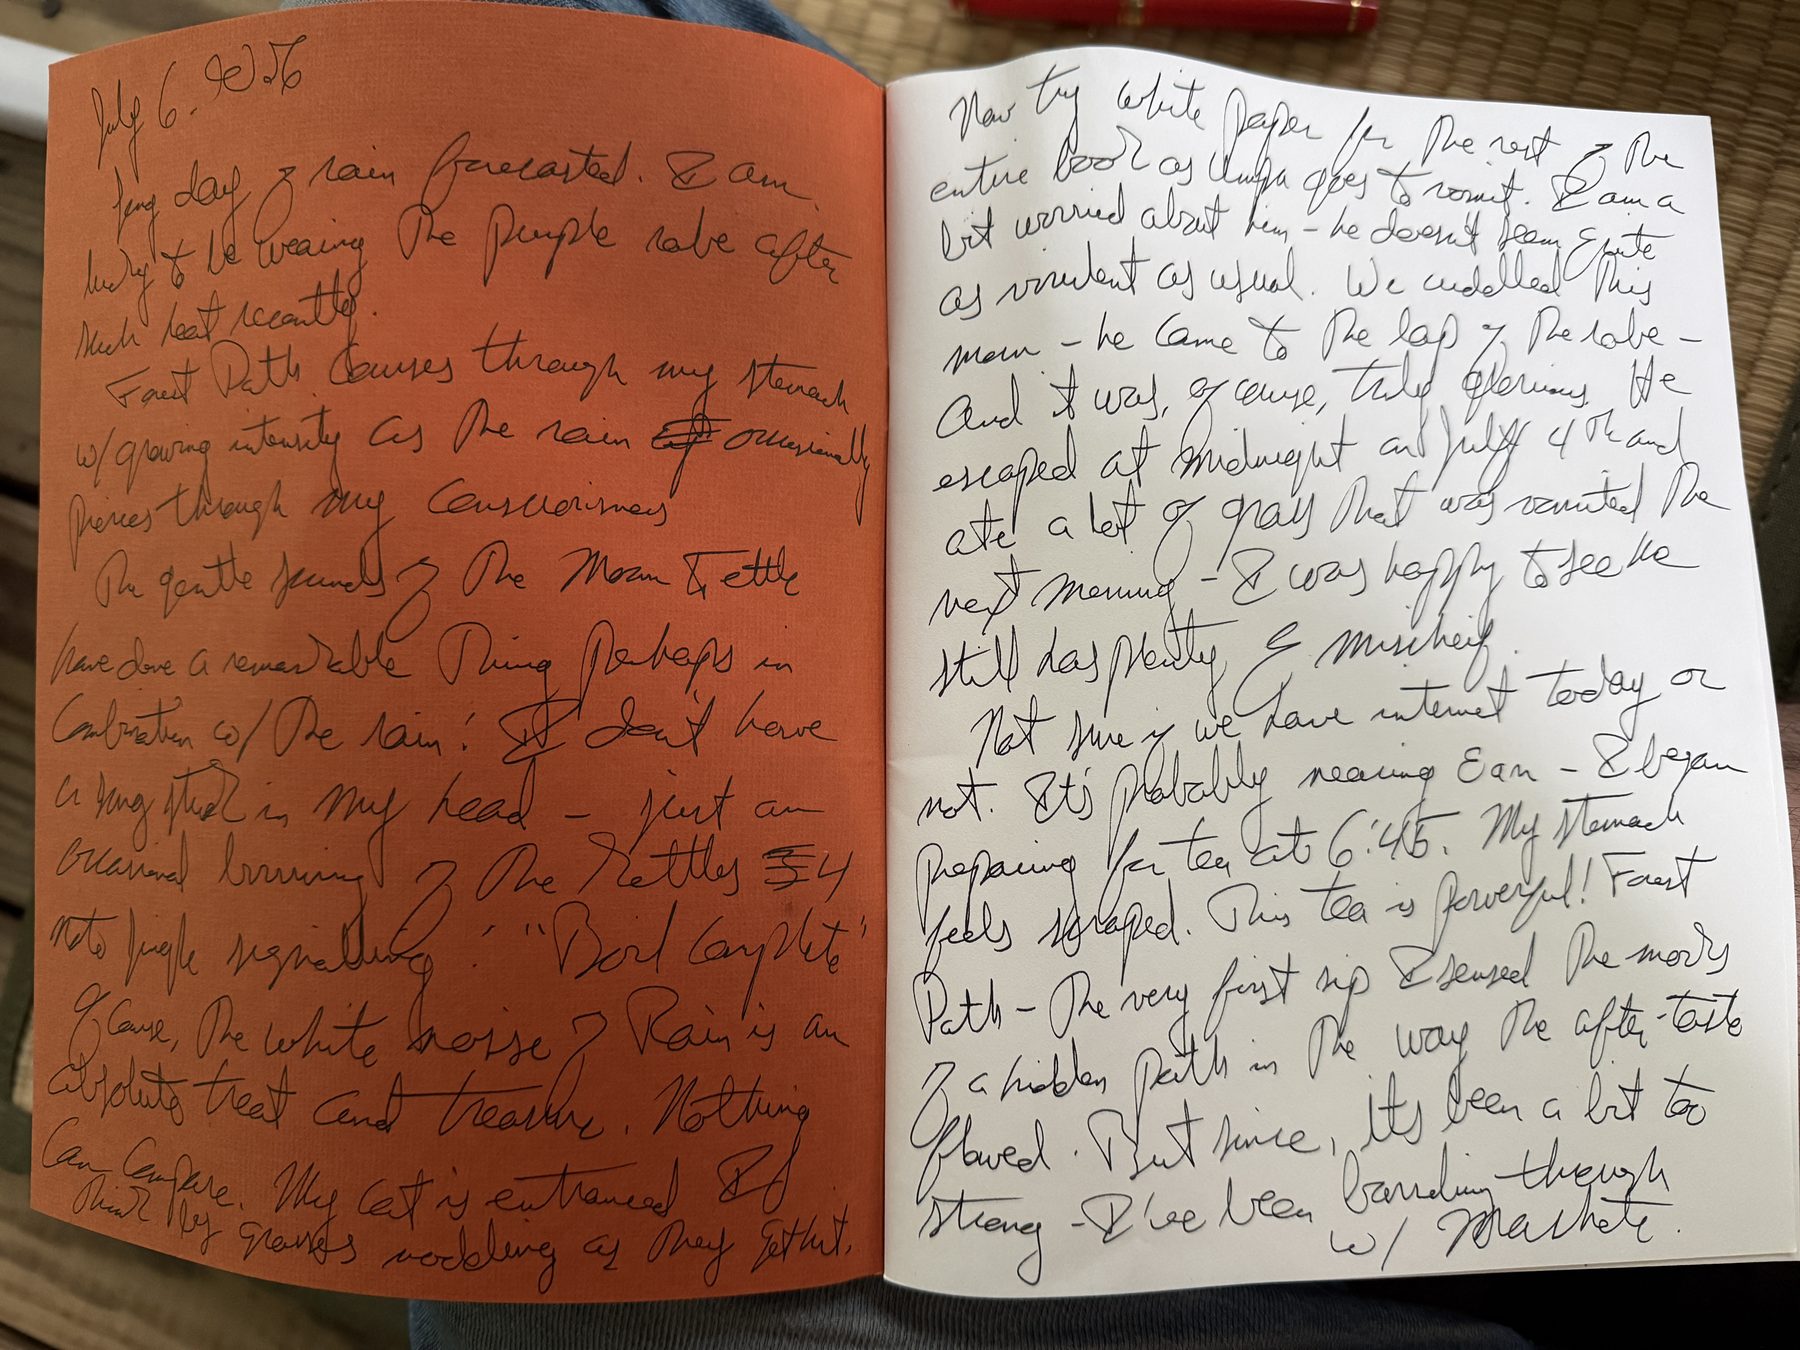 July 6.
long day of rain forecasted. I am
lucky to be wearing the purple robe after
such heat recently.
Forest Path courses through my stomach
w/ growing intensity as the rain occasionally
pierces through my consciousness
The gentle sounds of the Moon Kettle
have done a remarkable thing perhaps in
combination w/ the rain: I don't have
a song stuck in my head – just an
occasional of the Kettles 4
note jingle signalling: "Boil Complete"
Of course, the white noise of Rain is an
absolute treat and treasure. Nothing
can compare. My cat is entranced I'd
think by grasses nodding as they get hit.
Now try white paper for the rest of the
entire book as goes to vomit. I am a
bit worried about him – he doesn't seem quite
as virulent as usual. We cuddled this
morn – he came to the lap of the robe –
And it was, of course, truly glorious. He
escaped at midnight on July 4th and
ate a lot of grass that was vomited the
next morning – I was happy to see he
still has plenty of mischeif.
Not sure if we have internet today or
not. It's probably nearing 8am – I began
preparing for tea at 6:45. My stomach
feels scraped. This tea is powerful! Forest
Path – the very first sip I sensed the
of a hidden path in the way the after-taste
flowed. But since, it's been a bit too
strong – I've been through
w/ Machete.